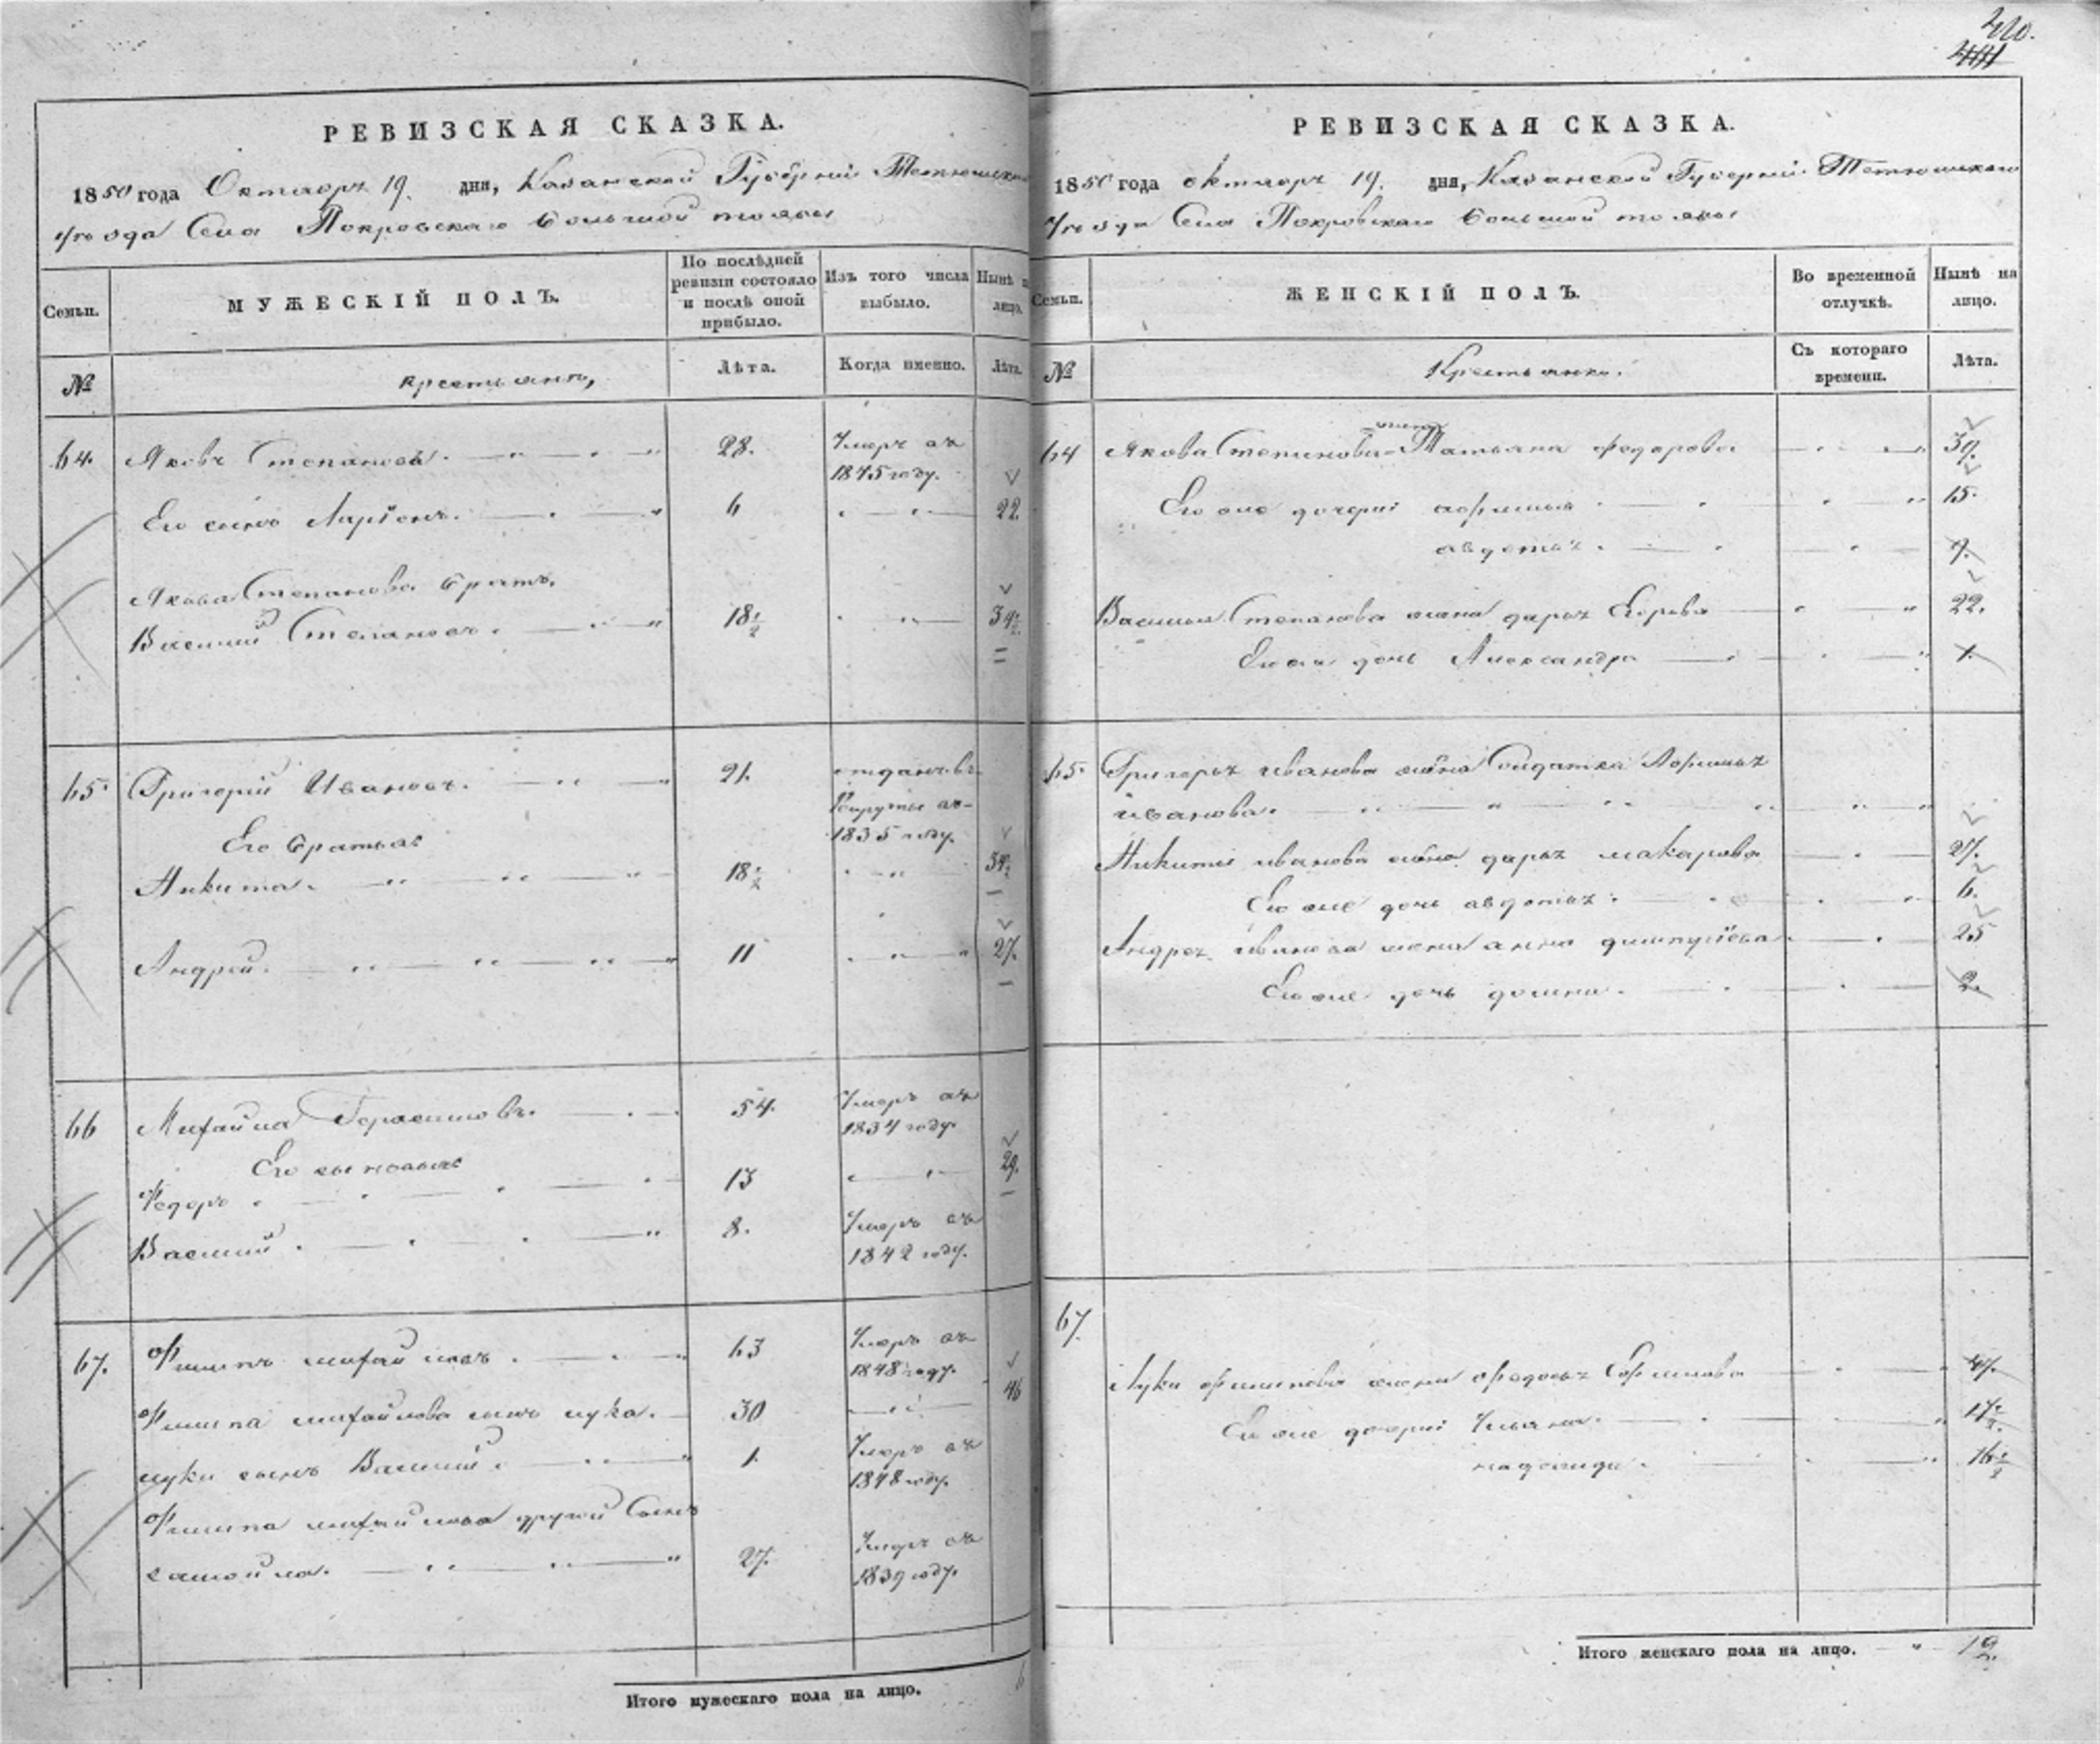 РЕВИЗСКАЯ СКАЗКА.
1850 года Октября 19. дня, Казанской Губернiи Тетюшскаго
уѣзда Села Покровскаго большой тоябы
Семьи.
МУЖЕСКІЙ ПОЛЪ.
По послѣдней ревизіи состояло и послѣ оной прибыло.
Изъ того числа выбыло.
Нынѣ на лицо.
№
крестьяне,
Лѣта.
Когда именно.
Лѣта.
64. Яковъ Степановъ. 28. Умеръ въ
1845 году.
Его сынъ Ларiонъ. 6 22.
Якова Степанова братъ.
Василий Степановъ. 18 1/2 34 1/2
65. Григорiй Ивановъ. 21. отданъ въ
Рекруты въ
1835 году.
Его братья
Никита. 18 1/2 34 1/2
Андрей. 11 27.
66 Михайла Герасимовъ. 54. Умеръ въ
1834 году.
Его сыновья
Федоръ 13 29.
Василий. 8. Умеръ въ
1842 году.
67. Филипъ михайловъ. 63 Умеръ въ
1848 году.
Филипа михайлова сынъ лука. 30 46
луки сынъ Василий. 1. Умеръ въ
1848 году.
Филипа михайлова другой Сынъ
самойла. 27. Умеръ въ
1839 году.
Итого мужескаго пола на лицо. 6
220.
РЕВИЗСКАЯ СКАЗКА.
1850 года октября 19. дня, Казанской Губернiи Тетюшскаго
уѣзда Села Покровскаго большой тоябы
Семьи.
ЖЕНСКІЙ ПОЛЪ.
Во временной отлучкѣ.
Нынѣ на лицо.
№
Крестьянки.
Съ котораго времени.
Лѣта.
жена
64 Якова Степанова Татьяна федорова 39.
Его же дочери афимья 15.
авдотья. 9.
Василья Степанова жена дарья Егорова 22.
Его же дочь Александра 1.
65. Григорья иванова жена Солдатка Афимья
иванова.
Никиты иванова жена дарья макарова 27.
Его же дочь авдотья. 6.
Андрея иванова жена анна 25
Его же дочь домна. 2.
67.
Луки филипова жена федосья 47.
Его же дочери Ульяна. 17 1/2
16 1/2
Итого женскаго пола на лицо. 12.